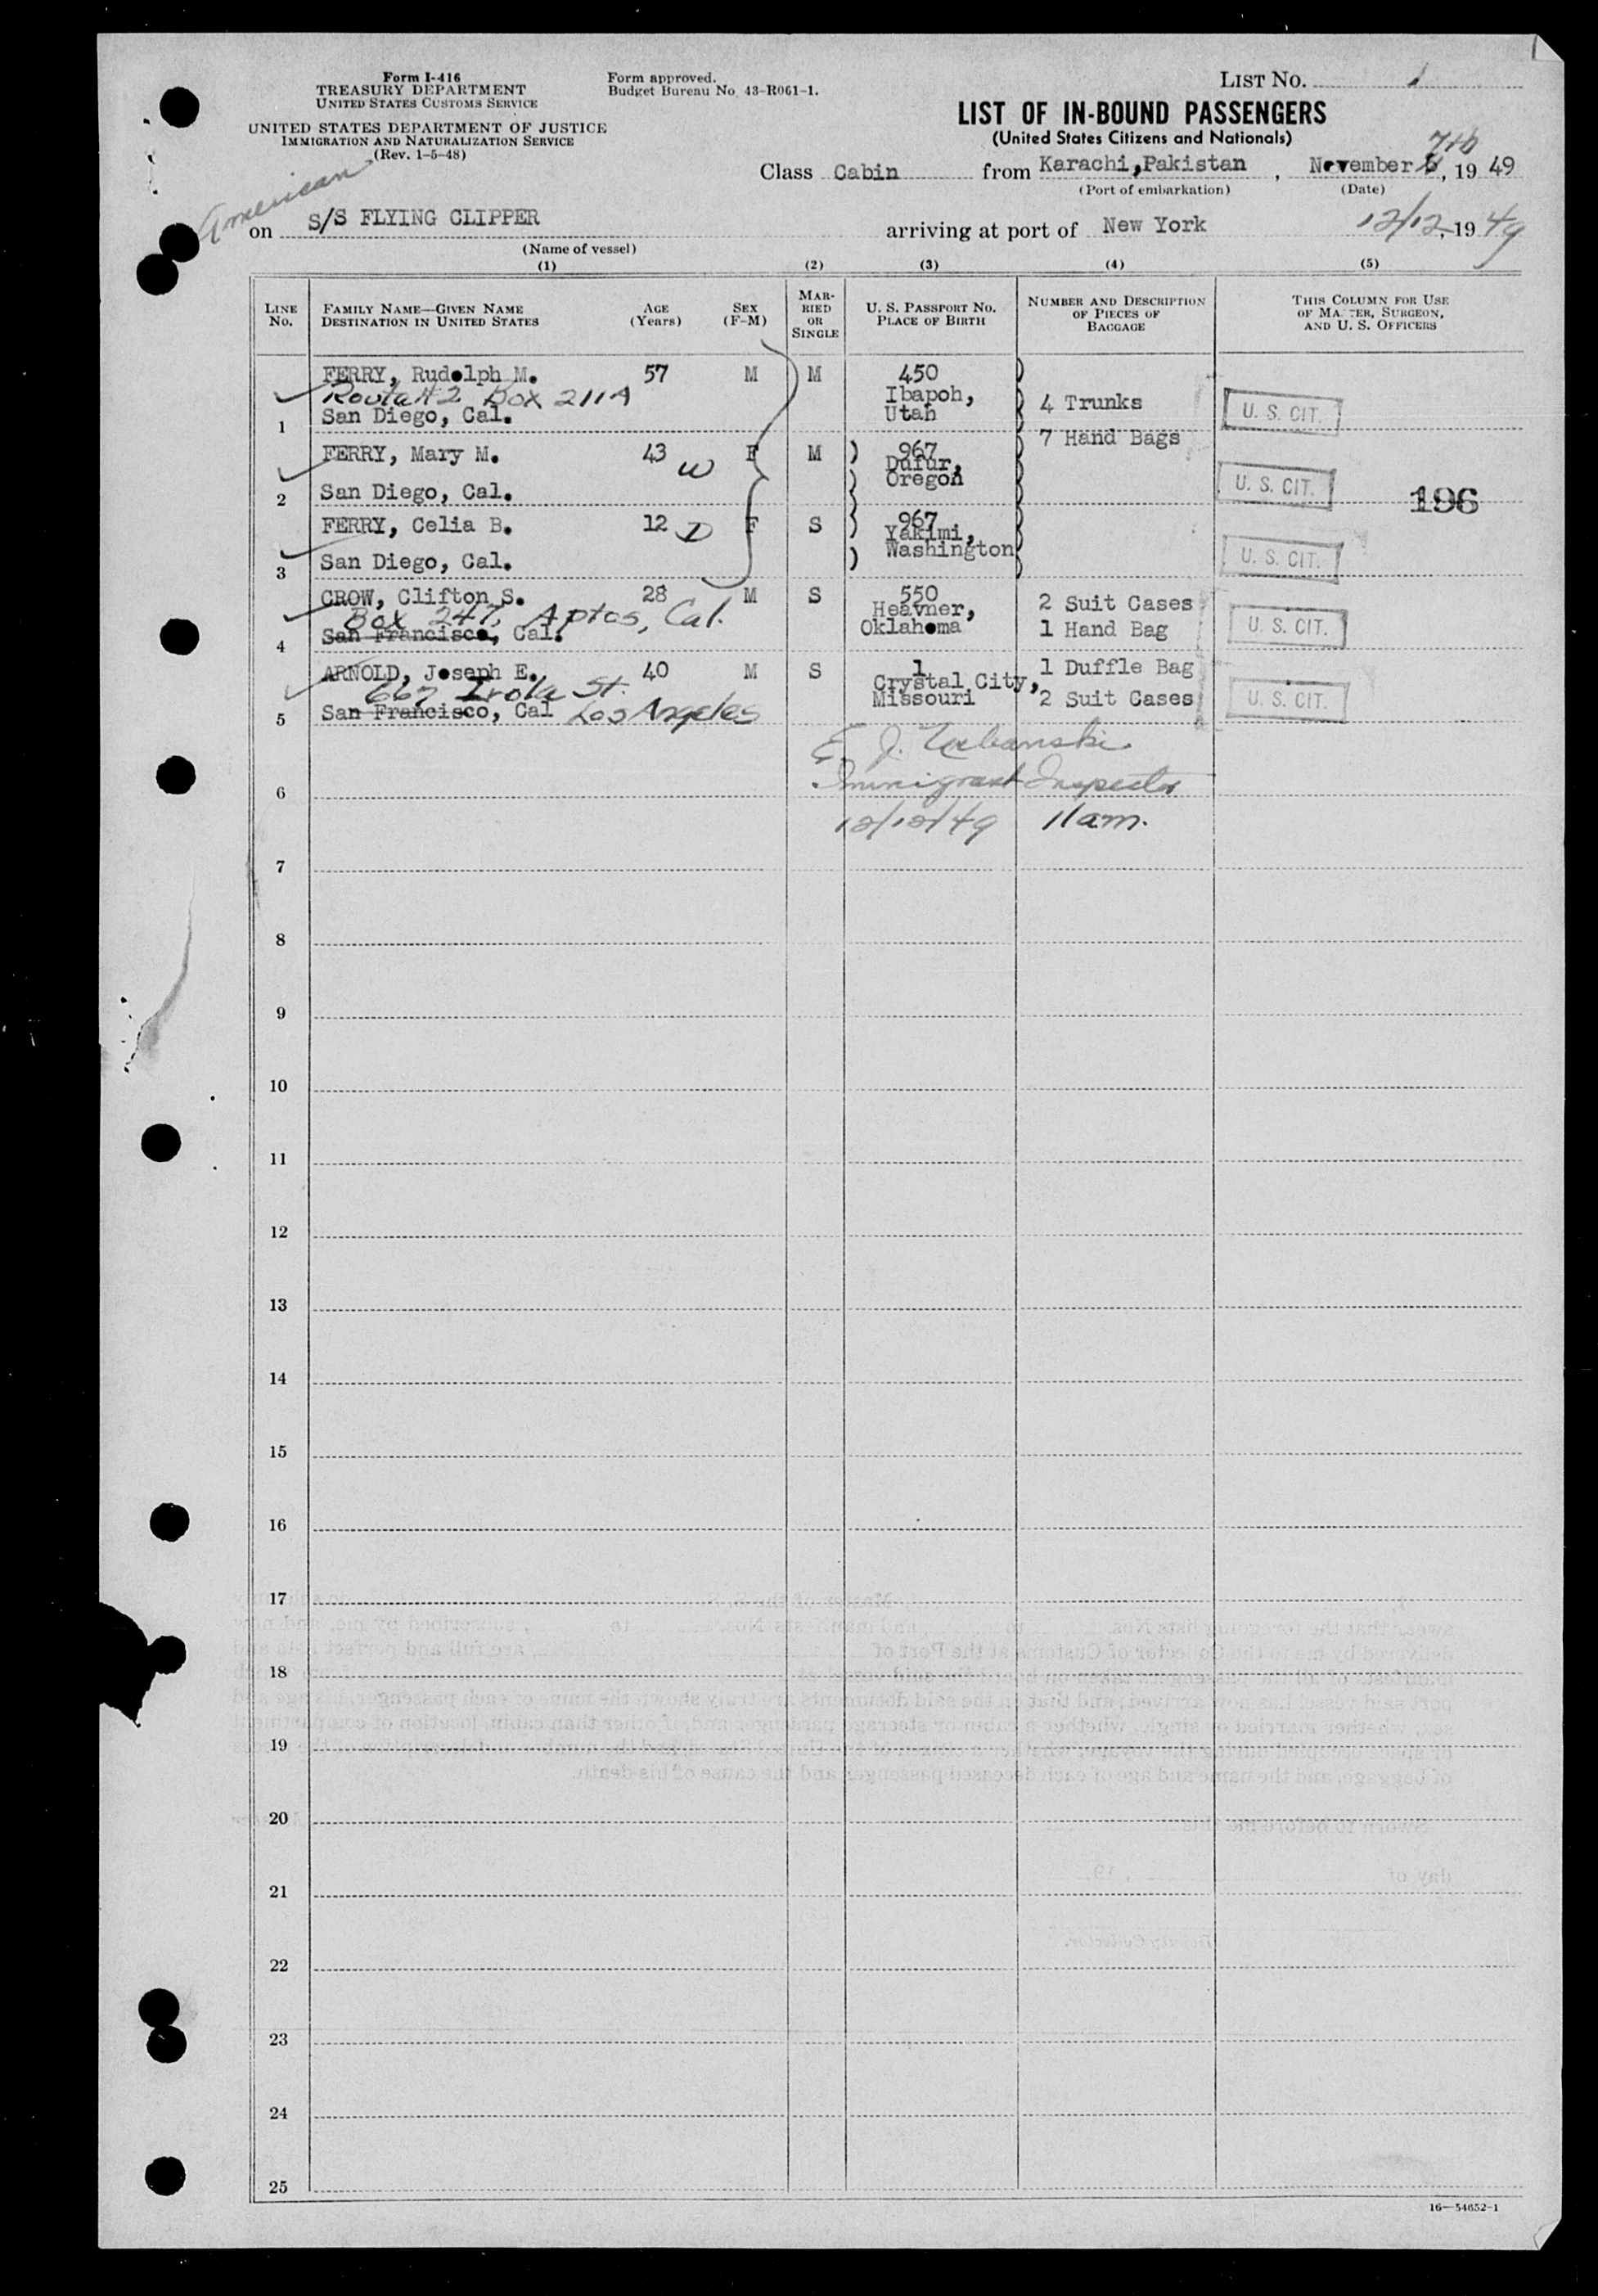 Form I-416
TREASURY DEPARTMENT
UNITED STATES CUSTOMS SERVICE
UNITED STATES DEPARTMENT OF JUSTICE
IMMIGRATION AND NATURALIZATION SERVICE
(Rev. 1-5-48)
Form approved.
Budget Bureau No. 43-R061-1.
LIST NO. 1
LIST OF IN-BOUND PASSENGERS
(United States Citizens and Nationals)
7th
Class Cabin from Karachi,Pakistan, November , 19 49
(Port of embarkation) (Date)
American
on S/S FLYING CLIPPER arriving at port of New York 12/12, 19 49
(Name of vessel)
(1) (2) (3) (4) (5)
LINE No.
FAMILY NAME—GIVEN NAME
DESTINATION IN UNITED STATES
AGE (Years)
SEX (F-M)
MARRIED OR SINGLE
U. S. PASSPORT NO.
PLACE OF BIRTH
NUMBER AND DESCRIPTION OF PIECES OF BAGGAGE
THIS COLUMN FOR USE OF MASTER, SURGEON, AND U. S. OFFICERS
FERRY, Rudolph M. 57 M M 450
Route #2 Box 211A Ibapoh,
San Diego, Cal. Utah 4 Trunks U. S. CIT.
1
7 Hand Bags
FERRY, Mary M. 43 W F M 967
Dufur,
San Diego, Cal. Oregon U. S. CIT.
2 196
FERRY, Celia B. 12 D F S 967
Yakimi,
San Diego, Cal. Washington U. S. CIT.
3
CROW, Clifton S. 28 M S 550 2 Suit Cases
Box 247, Aptos, Cal. Heavner,
San Francisco, Cal. Oklahoma 1 Hand Bag U. S. CIT.
4
ARNOLD, Joseph E. 40 M S 1 1 Duffle Bag
667 Irola St. Crystal City,
San Francisco, Cal Los Angeles Missouri 2 Suit Cases U. S. CIT.
5
E. J.
Immigrant Inspector
6
12/12/49 11am.
7
8
9
10
11
12
13
14
15
16
17
18
19
20
21
22
23
24
25
16—54652-1